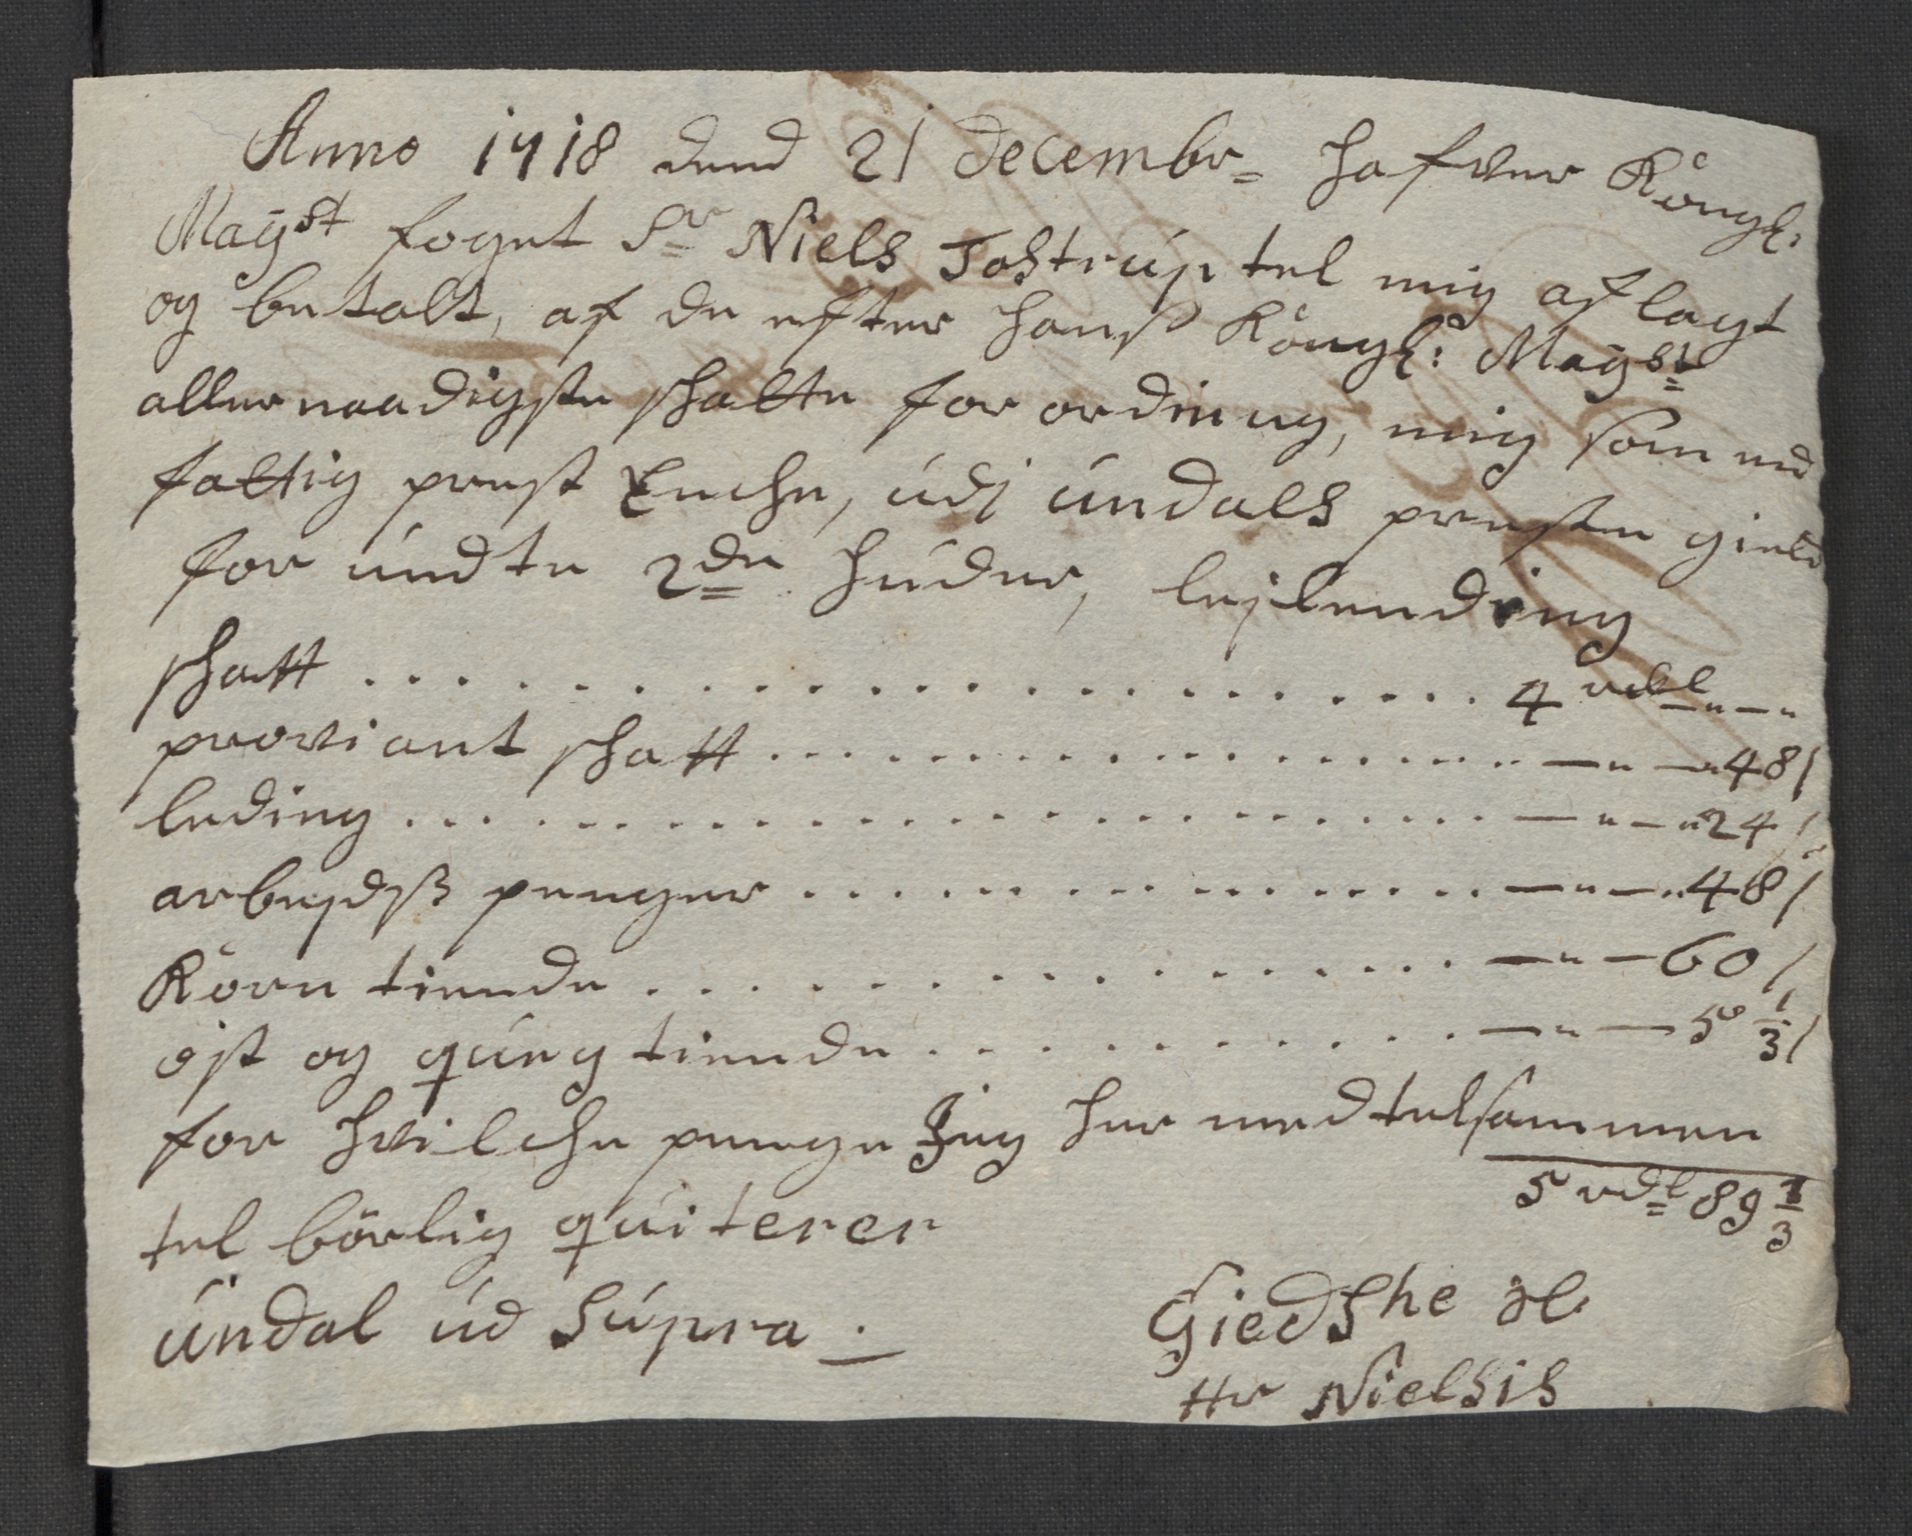 Anno 1718 dend 21 decembr= hafver Kongl:
Mayst foget Sr Niels Tostrup tel mig aflagt
og betalt, af de efter hans Kongl: Mayst
allernaadigste skatte forordning, mig som ed
fattig prest Enche, udj Undals preste gield
for undte 2de huder, lejlending
skatt . . . . . . . . . . . . . . . . . . 4 rdl — " — "
proviant skatt . . . . . . . . . . . . . . — " — " 48 s
leding . . . . . . . . . . . . . . . . . . — " — " 24 s
arbejdsß penger . . . . . . . . . . . . . — " — " 48 s
Korn tiende . . . . . . . . . . . . . . . — " — 60 s
ost og qveg tiende . . . . . . . . . . . . — " — 5 1/3 s
for hvilche penge Jeg her med telsammen
5 rdl 89 1/3
tel börlig quiterer
Undal ud Supra
Giedske
Hr Nielsis